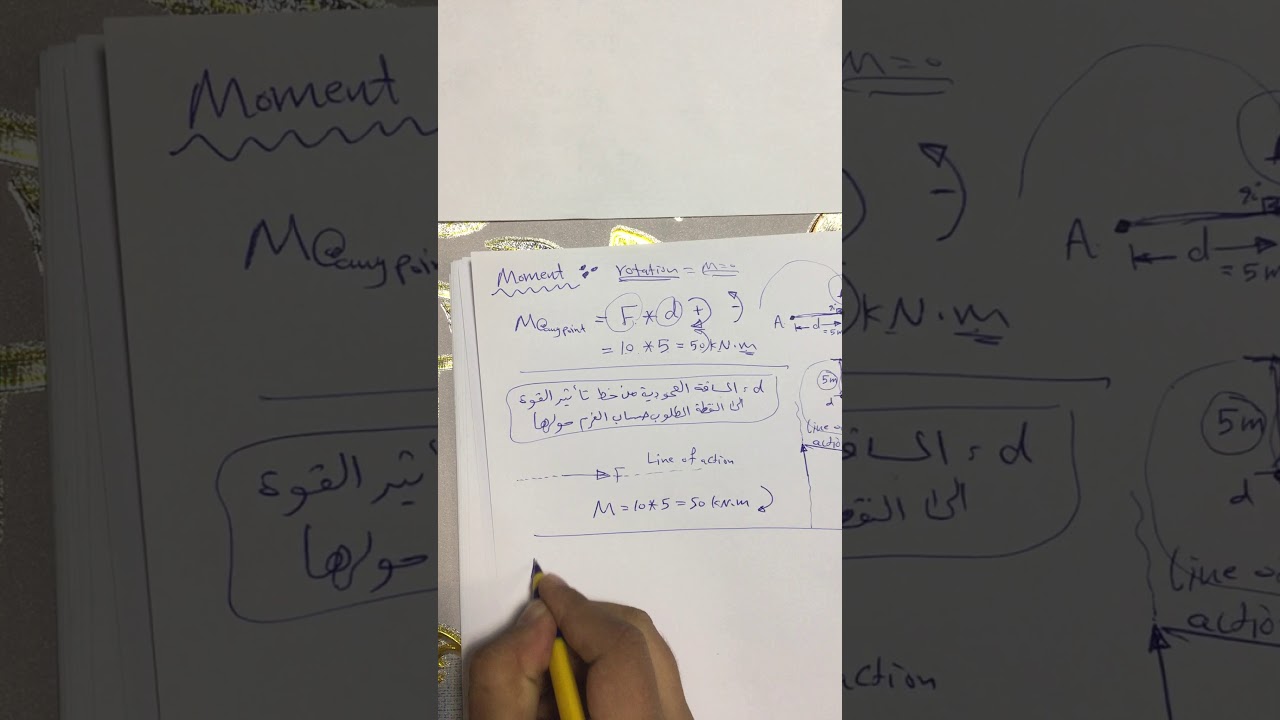 Moment :• rotation = M=0
M@any point = F * d + -
= 10 * 5 = 50 kN.m
A d = 5m
d = المسافة العمودية من خط تأثير القوة
الى النقطة المطلوب حساب العزم حولها
5m
d
Line of action
F
Line of action
M = 10 * 5 = 50 kN.m